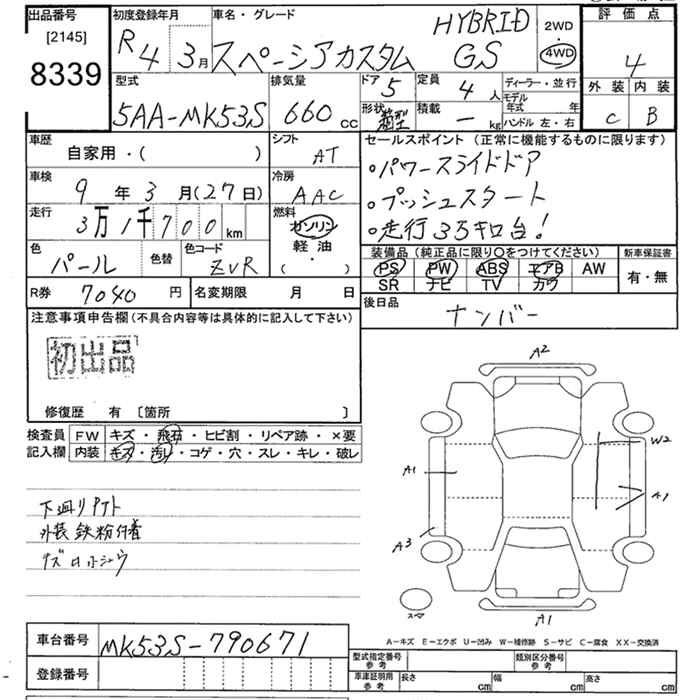 出品番号
[2145]
8339
初度登録年月
R4 3月
車名・グレード
HYBRID
スペーシアカスタム GS
2WD
4WD
評価点
4
外装 内装
C B
型式
5AA-MK53S
排気量
660 cc
ドア
5
定員
4 人
形状
箱型
積載
- kg
ディーラー・並行
モデル年式 年
ハンドル 左・右
車歴
自家用・( )
シフト
AT
車検
9年3月(27日)
冷房
AAC
走行
3万1千700 km
燃料
ガソリン
軽油
( ・ )
色
パール
色替
色コード
ZVR
R券 7040 円
名変期限 月 日
セールスポイント (正常に機能するものに限ります)
・パワースライドドア
・プッシュスタート
・走行3.5キロ台!
装備品(純正品に限り○をつけてください)
PS PW ABS エアB AW
SR ナビ TV カワ
新車保証書
有・無
後日品
ナンバー
注意事項申告欄(不具合内容等は具体的に記入して下さい)
初出品
修復歴 有 [箇所 ]
検査員記入欄
FW キズ・飛石・ヒビ割・リペア跡・×要
内装 キズ・汚レ・コゲ・穴・スレ・キレ・破レ
下廻りPクト
外装鉄粉付着
キズロホシュウ
A2
W2
A1
A1
A3
A1
スマ
A-キズ E-エクボ U-凹み W-補修跡 S-サビ C-腐食 XX-交換済
車台番号 MK53S-790671
登録番号
型式指定番号 参考
類別区分番号 参考
車庫証明用 参考
長さ cm
幅 cm
高さ cm